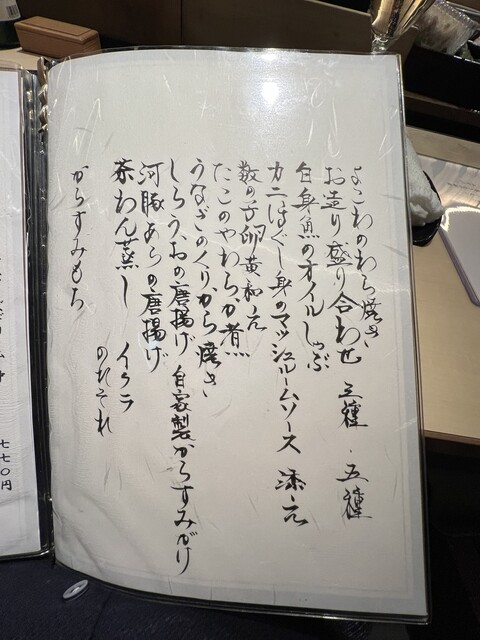 よこわのわら焼き
お造り盛り合わせ 三種・五種
白身魚のオイルしゃぶ
カニほぐし身のマッシュルームソース添え
数の子卵黄和え
たこのやわらか煮
うなぎのくりから焼き
しらうおの唐揚げ 自家製からすみがけ
河豚あらの唐揚げ
茶わん蒸し イクラ
のれそれ
からすみもち
七七〇円